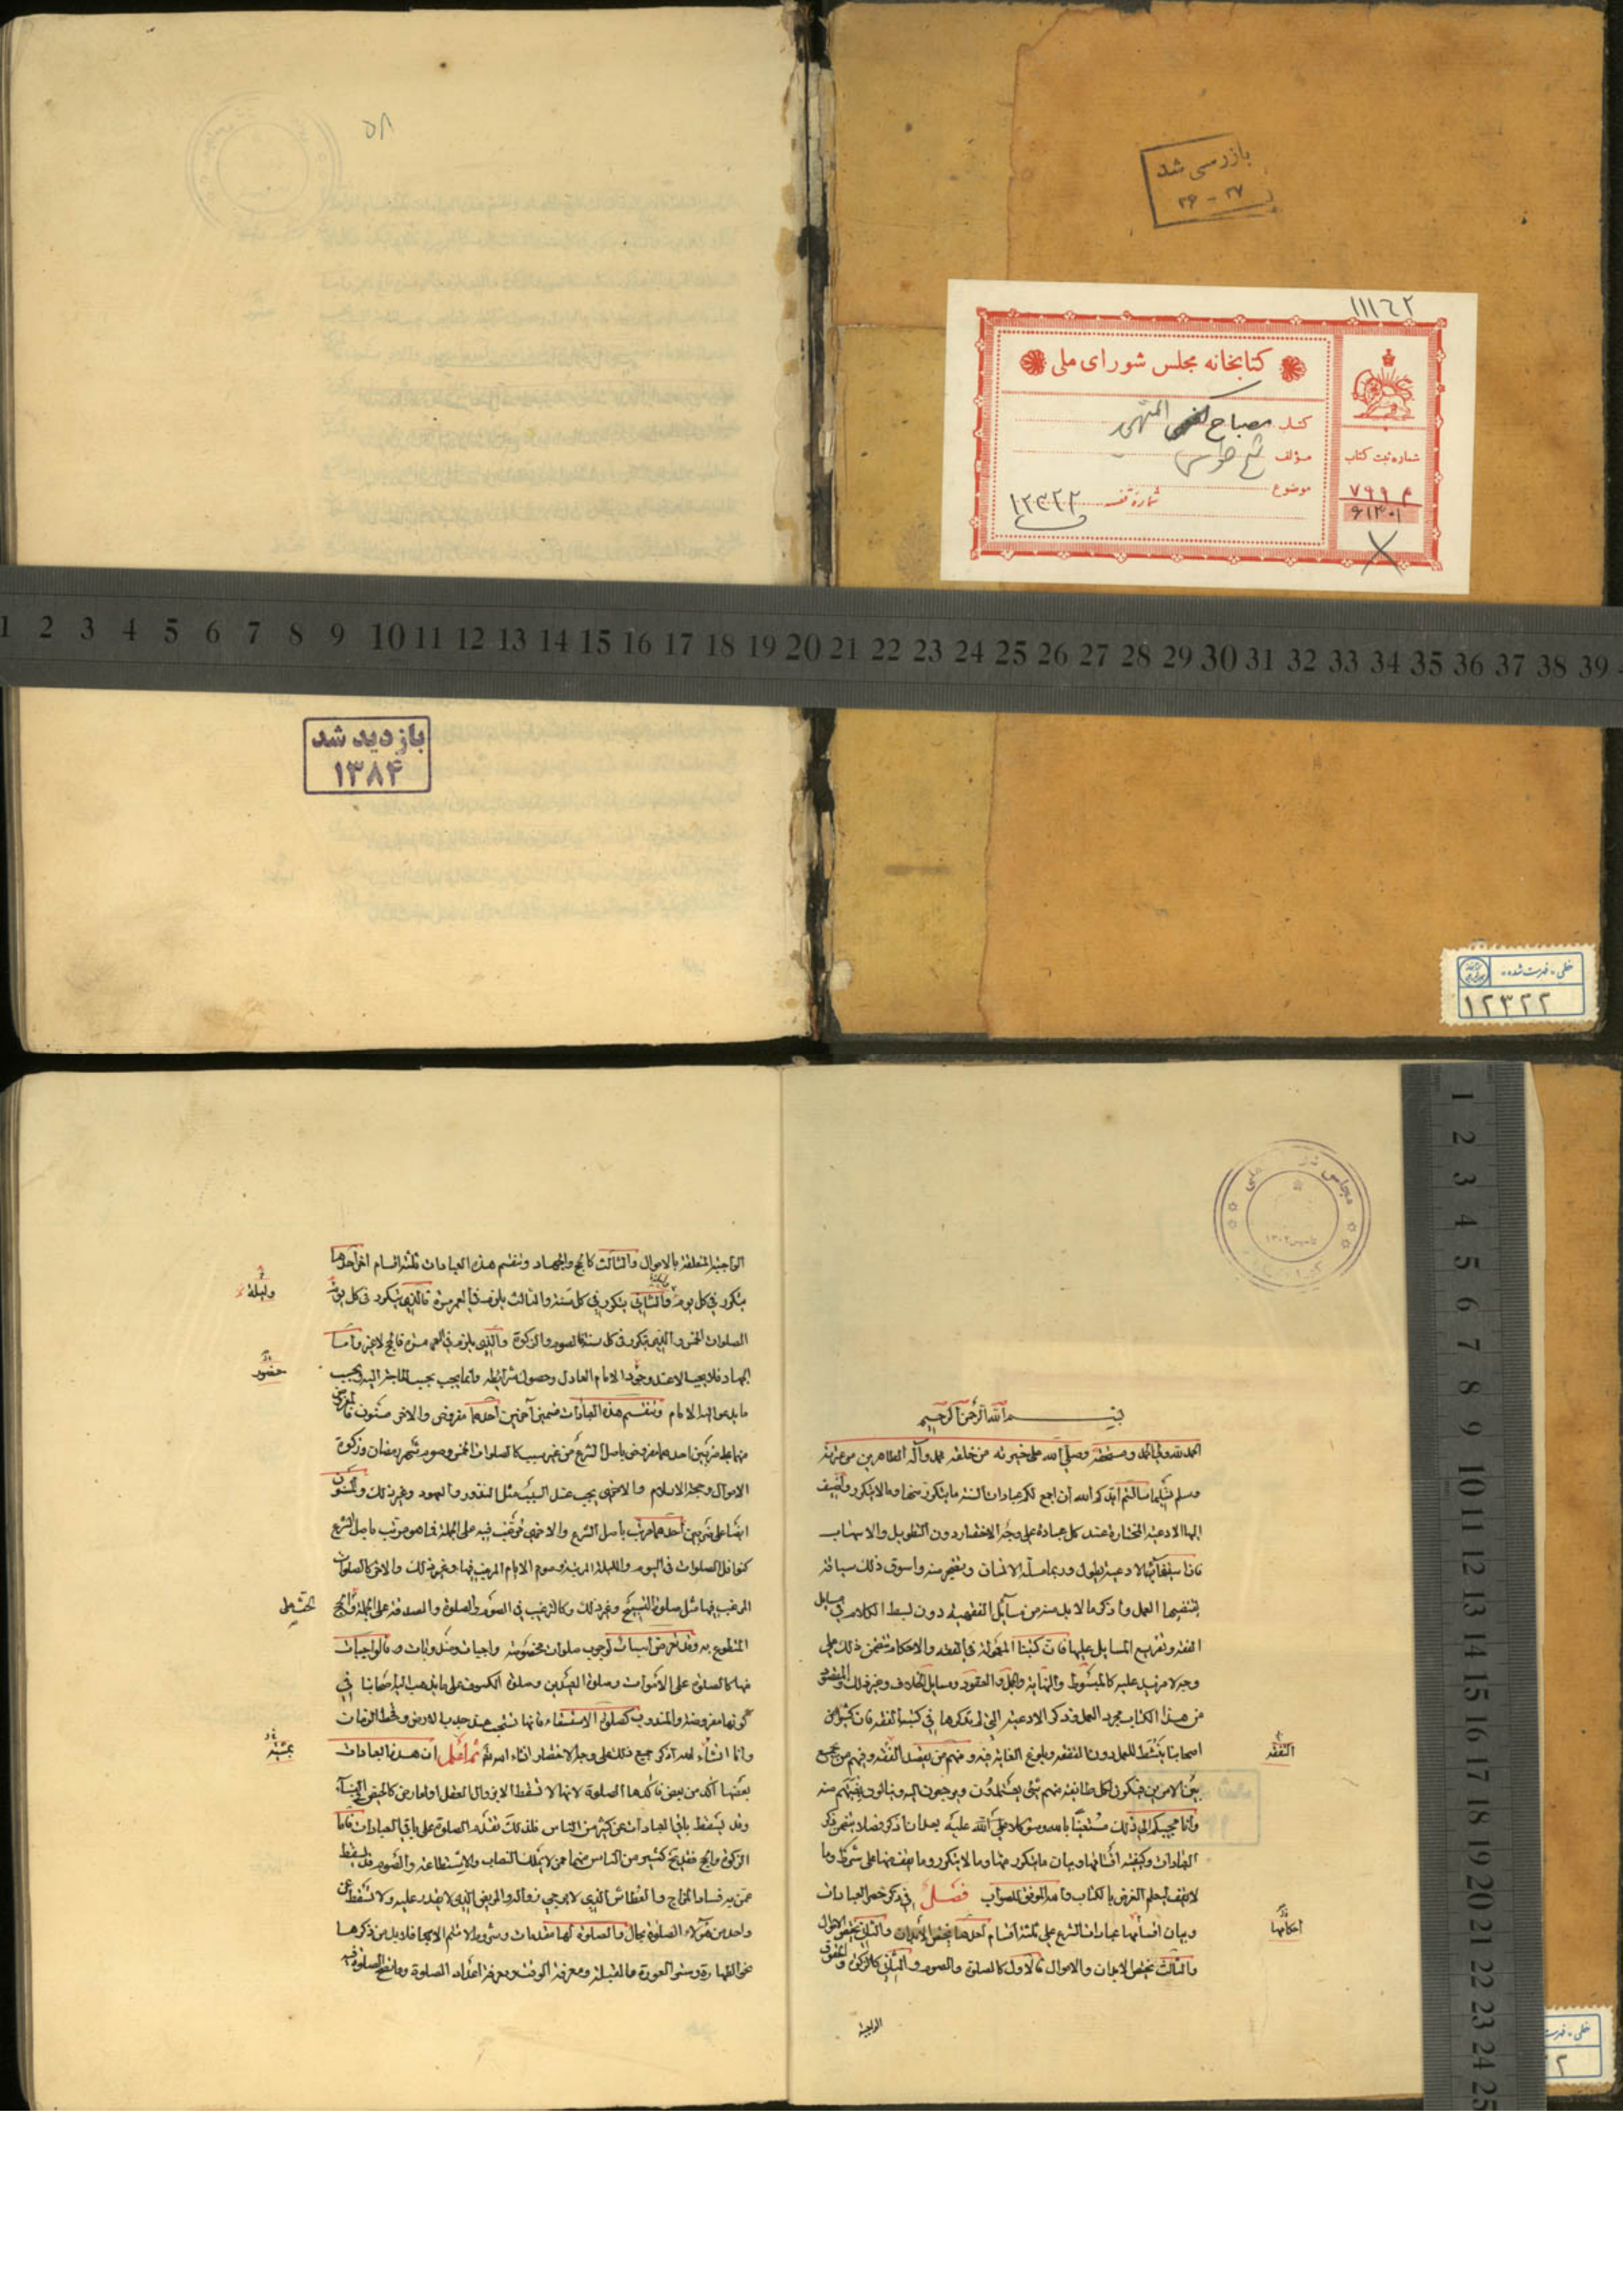 ۵۸
بازرسی شد
۳۶ - ۳۷
۱۱۱٦۲
کتابخانه مجلس شورای ملی
کتاب مصباح المتهجد
مؤلف شیخ طوسی
موضوع
شماره قفسه ۱۲۳۲۲
شماره ثبت کتاب
۷۹۹۴
۶۱۳۰۱
1 2 3 4 5 6 7 8 9 10 11 12 13 14 15 16 17 18 19 20 21 22 23 24 25 26 27 28 29 30 31 32 33 34 35 36 37 38 39
بازدید شد
۱۳۸۴
خطی - فهرست شده
۱۲۳۲۲
مجلس شورای ملی
1 2 3 4 5 6 7 8 9 10 11 12 13 14 15 16 17 18 19 20 21 22 23 24 25
بسم الله الرحمن الرحيم
الحمد لله ولي الحمد ومستحقه وصلى الله على خيرته من خلقه محمد وآله الطاهرين من عترته
وسلم تسليما سألتم أيدكم الله أن اجمع لكم عبادات السنة ما يتكرر منها وما لا يتكرر واضيف
اليها الادعية المختارة عند كل عبادة على وجه الاختصار دون التطويل والاسهاب
فان استيفاء الادعية يطول وربما مله الانسان وتضجر منه واسوق ذلك سياقة
يقتضيها العمل واذكر ما لا بد منه من مسائل الفقه فيه دون بسط الكلام في مسايل
الفقه وتفريع المسايل عليها فان كتبنا المعمولة في الفقه والاحكام تتضمن ذلك على
وجه لا مزيد عليه كالمبسوط والنهاية والجمل والعقود ومسايل الخلاف وغير ذلك والمقصود
من هذا الكتاب مجرد العمل وذكر الادعية التي لم نذكرها في كتب الفقه فان كثيرا من
اصحابنا ينشط للعمل دون التفقه وبلوغ الغاية فيه ومنهم من يقصد التفقه وفيهم من يجمع
بين الامرين فيكون لكل طائفة منهم شيء يعتمدون ويرجعون اليه وينالون بغيتهم منه
وانا مجيبكم الى ذلك مستعينا بالله ومتوكلا على الله عليه بعد ان اذكر فصلا يتضمن ذكر
العبادات وكيفية اقسامها وبيان ما يتكرر منها وما لا يتكرر وما يقف منها على شرط وما
لا يقف ليعلم الغرض بالكتاب والله الموفق للصواب فصل في ذكر حصر العبادات
وبيان اقسامها عبادات الشرع على ثلثة اقسام احدها يختص الابدان والثاني يختص الاموال
والثالث يختص الابدان والاموال فالاول كالصلوة والصوم والثاني كالزكوة والحقوق
الواجبة
التفقه
احكامها
الواجبة المتعلقة بالاموال والثالث كالحج والجهاد وتنقسم هذه العبادات ثلثة اقسام اخر احدها
يتكرر في كل يوم والثاني يتكرر في كل سنة والثالث يلزم في العمر مرة فالذي يتكرر في كل يوم
الصلوات الخمس والذي يتكرر في كل سنة فالصوم والزكوة والذي يلزم في العمر مرة فالحج لا غير واما
الجهاد فلا يجب الا عند وجود الامام العادل وحصول شرائطه وانما يجب بحسب الحاجة اليه وبحسب
ما يدعو اليه الامام وتنقسم هذه العبادات قسمين آخرين احدهما مفروض والاخر مسنون فالمفروض
منها على ضربين احدهما مفروض باصل الشرع من غير سبب كالصلوات الخمس وصوم شهر رمضان وزكوة
الاموال وحجة الاسلام والاخر يجب عند السبب مثل النذور والعهود وغير ذلك والمسنون
ايضا على ضربين احدهما مرتب باصل الشرع والاخر مرغب فيه على الجملة فما هو مرتب باصل الشرع
كنوافل الصلوات في اليوم والليلة المرتبة وصوم الايام المرغب فيها وغير ذلك والاخر كالصلوات
المرغب فيها مثل صلوة التسبيح وغير ذلك وكالترغيب في الصوم والصلوة والصدقة على الجملة والحج
المتطوع به وقد تعرض اسباب لوجوب صلوات مخصوصة واجبات ومندوبات فالواجبات
منها كالصلوة على الاموات وصلوة العيدين وصلوة الكسوف على ما يذهب اليه اصحابنا في
كونها مفروضة والمندوب كصلوة الاستسقاء فانها تستحب عند جدب الارض وقحط الزمان
وانا ان شاء الله اذكر جميع ذلك على وجه الاختصار ان شاء الله ثم اعلم ان هذه العبادات
بعضها آكد من بعض فآكدها الصلوة لانها لا تسقط الا بزوال العقل او لعارض كالحيض في النساء
وقد يسقط باقي العبادات عن كثير من الناس فلذلك نقدم الصلوة على باقي العبادات فاما
الزكوة والحج فقد يخ كثير من الناس منهما ممن لا يملك النصاب والاستطاعة والصوم قد يسقط
عمن به فساد المزاج والعطاش الذي لا يرجى زواله والمريض الذي لا يقدر عليه ولا تسقط عن
واحد من هؤلاء الصلوة بحال والصلوة لها مقدمات وشروط لا تتم الا بها فلا بد من ذكرها
نحو الطهارة وستر العورة والقبلة ومعرفة الوقت ومعرفة اعداد الصلوة وما تصح الصلوة فيه
وليلة
حضور
الحث على
بمشية